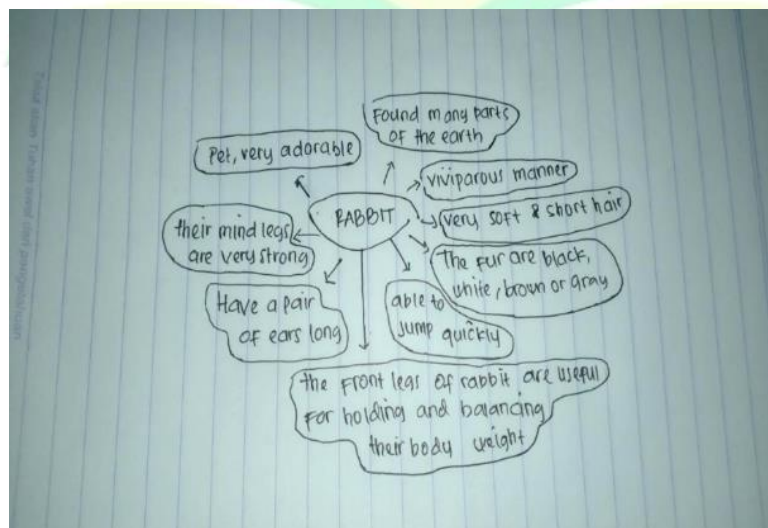 Found many parts
of the earth
Pet, very adorable
viviparous manner
RABBIT
very soft & short hair
their mind legs
are very strong
The fur are black,
white, brown or gray
Have a pair
of ears long
able to
jump quickly
the front legs of rabbit are useful
for holding and balancing
their body weight